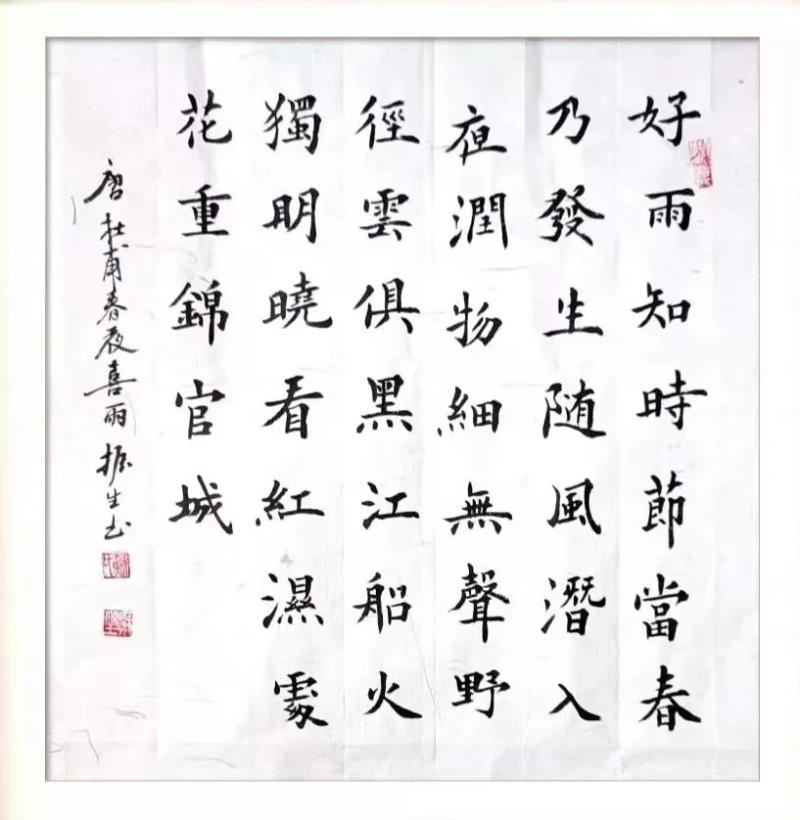 好雨知時節當春
乃發生随風潛入
夜潤物細無聲野
徑雲俱黑江船火
獨明曉看紅濕處
花重錦官城
唐杜甫春夜喜雨振生书